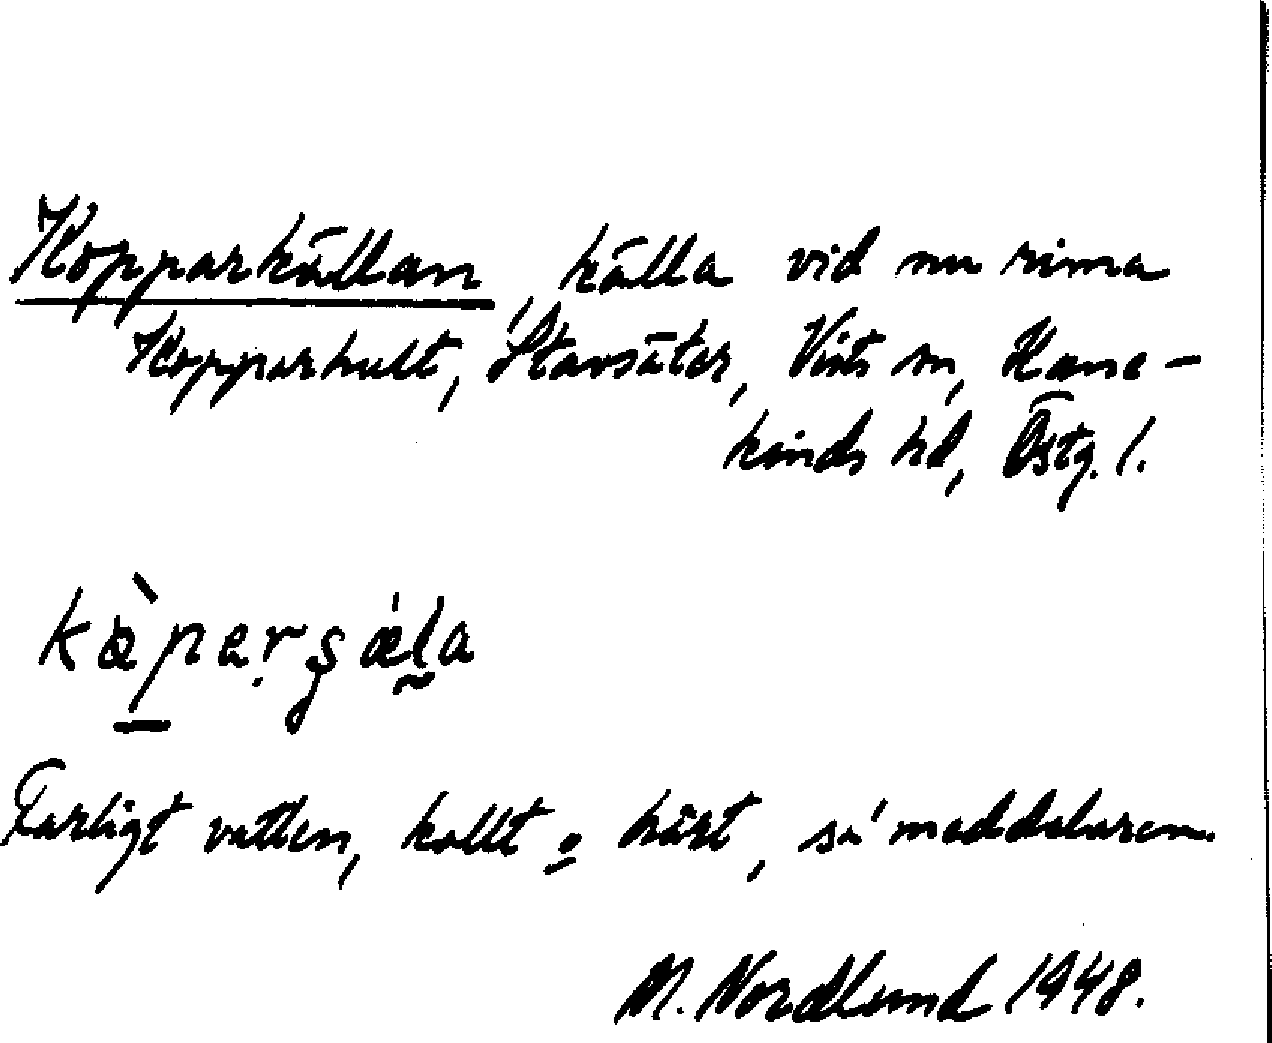 Kopparkällan, källa vid nu rivna
Kopparhult, Stavsäter, Vists sn, Hane-
kinds hd, Östg. l.
kòperşǽla
Farligt vatten, kallt o hårt, så meddelaren.
M. Nordlund 1948.